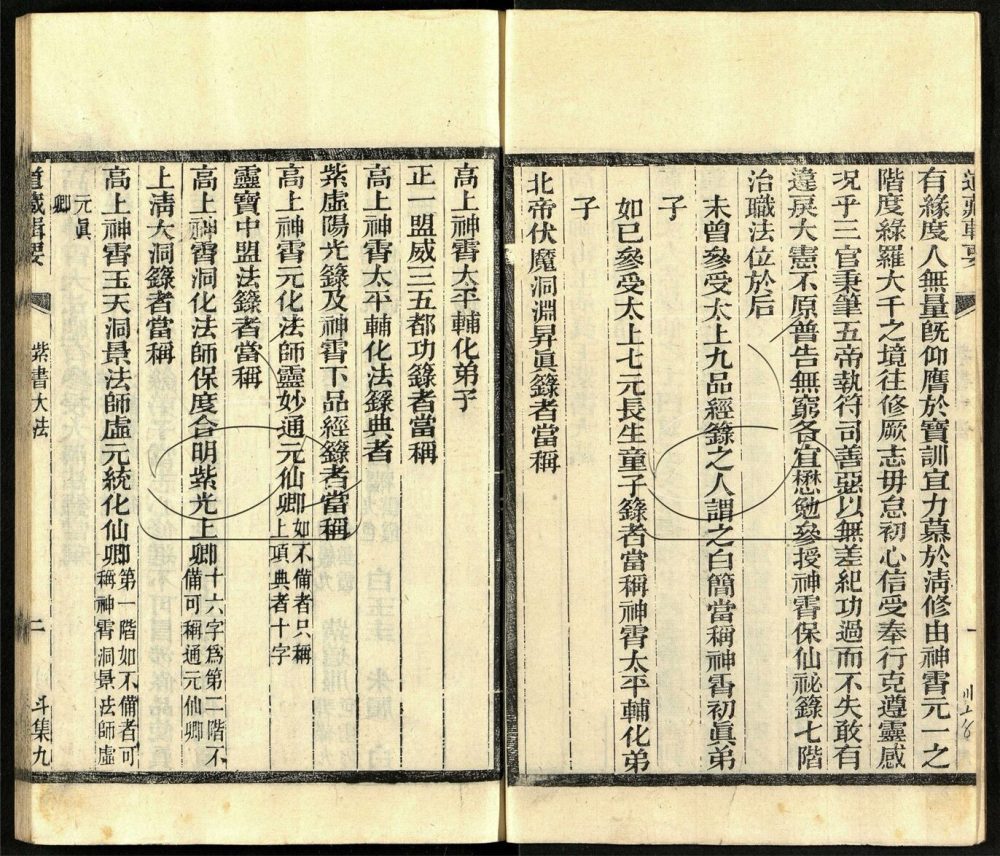 道藏輯要
有緣度人無量旣仰膺於寶訓宜力慕於淸修由神霄元一之
階度緜羅大千之境往修厥志毋怠初心信受奉行克遵靈感
況乎三官秉筆五帝執符司善惡以無差紀功過而不失敢有
違戾大憲不原普告無窮各宜懋勉參授神霄保仙祕籙七階
治職法位於后
未曾參受太上九品經籙之人謂之白簡當稱神霄初眞弟
子
如已參受太上七元長生童子籙者當稱神霄太平輔化弟
子
北帝伏魔洞淵昇眞籙者當稱
高上神霄太平輔化弟子
正一盟威三五都功籙者當稱
高上神霄太平輔化法籙典者
紫虛陽光籙及神霄下品經籙者當稱
高上神霄元化法師靈妙通元仙卿如不備者只稱
上項典者十字
靈寶中盟法籙者當稱
高上神霄洞化法師保度合明紫光上卿十六字爲第二階不
備可稱通元仙卿
上淸大洞籙者當稱
高上神霄玉天洞景法師虛元統化仙卿第一階如不備者可
稱神霄洞景法師虛
元眞
卿
道藏輯要
紫書大法
二
斗集九